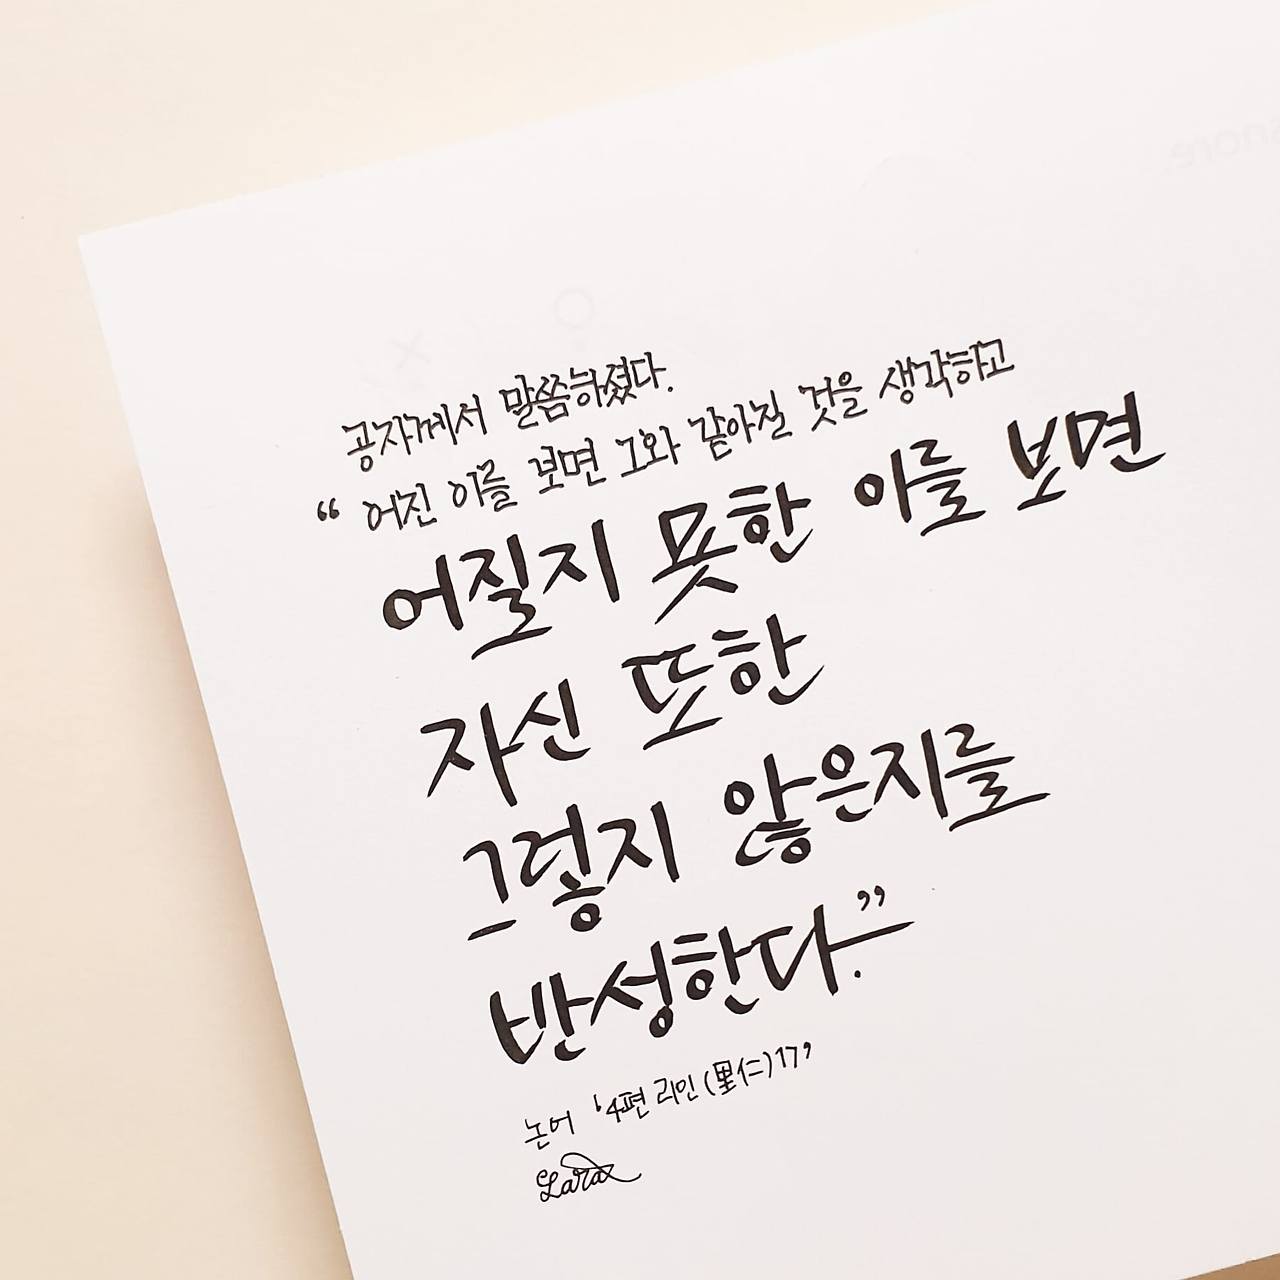 공자께서 말씀하셨다.
“어진 이를 보면 그와 같아질 것을 생각하고
어질지 못한 이를 보면
자신 또한
그렇지 않은지를
반성한다.”
논어 ‘4편 리인(里仁)17’
Lara